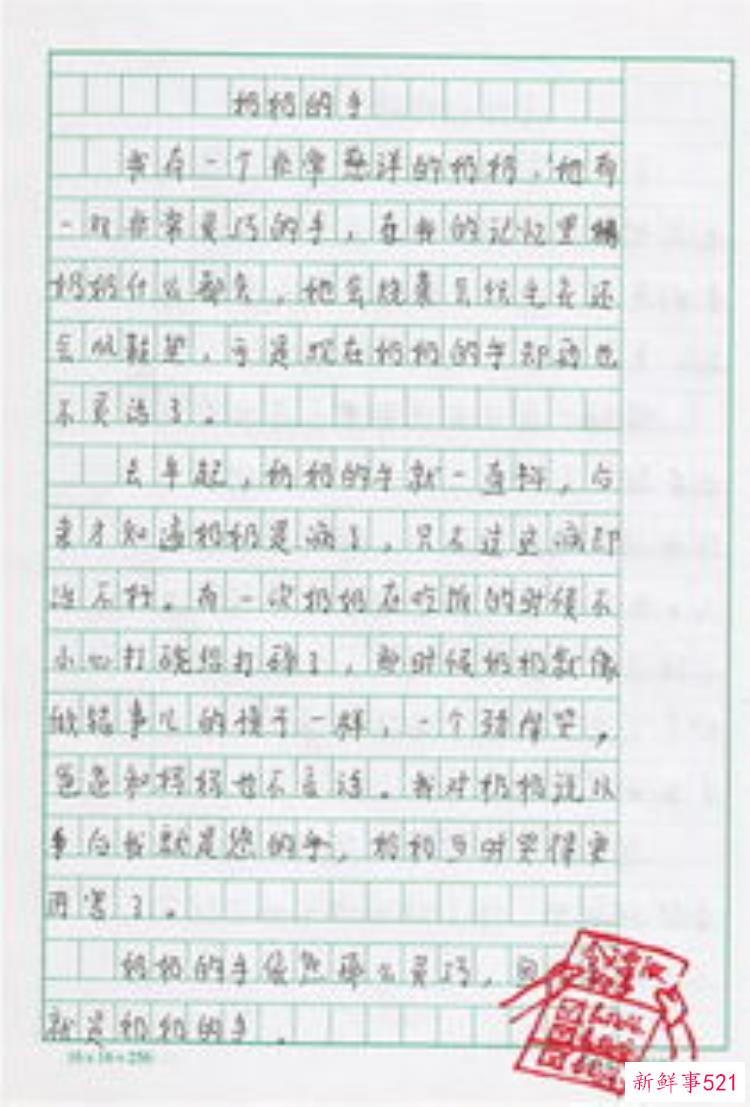 奶奶的手
我有一个非常慈祥的奶奶,她有
一双非常灵巧的手,在我的记忆里
奶奶什么都会,她会烧菜会织毛衣还
会做鞋垫,于是现在奶奶的手却再也
不灵活了。
去年起,奶奶的手就一直抖,后
来才知道奶奶是病了,只不过这病却
治不好。有一次奶奶在吃饭的时候不
小心打碗给打碎了,那时候奶奶就像
做错事儿的孩子一样,一个劲
爸爸和妈妈也不言语。我对奶奶说以
后我就是您的手,奶奶 时哭得更
厉害了。
奶奶的手依然那么灵巧,
就是奶奶的手。
16×16=256
新鲜事521